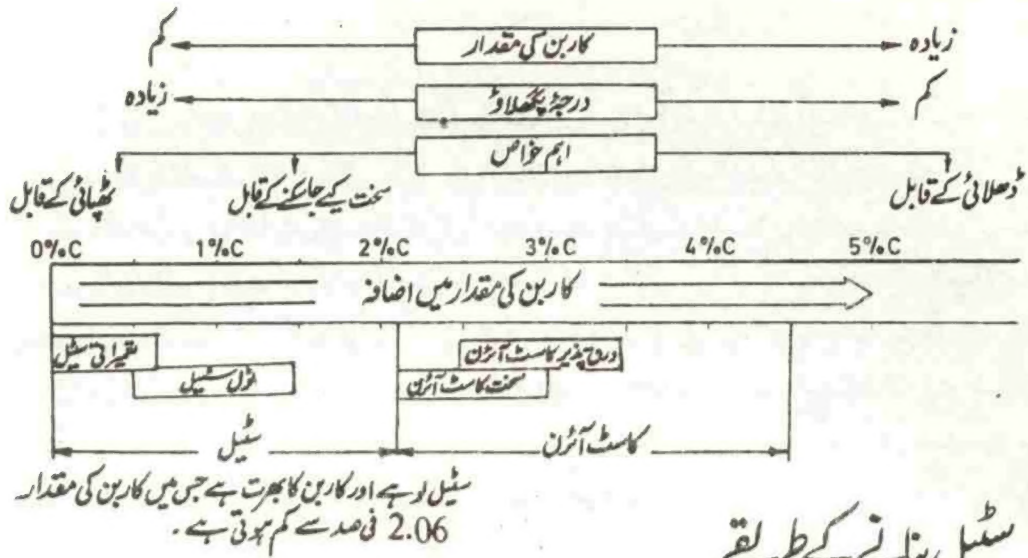 زیادہ کاربن کی مقدار کم
کم درجۂ پگھلاؤ زیادہ
اہم خواص
ڈھلائی کے قابل سخت کیے جا سکنے کے قابل ٹھپائی کے قابل
0%C 1%C 2%C 3%C 4%C 5%C
کاربن کی مقدار میں اضافہ
تعمیراتی سٹیل ورق پذیر کاسٹ آئرن
ٹول سٹیل سخت کاسٹ آئرن
سٹیل کاسٹ آئرن
سٹیل لوہے اور کاربن کا بھرت ہے جس میں کاربن کی مقدار
2.06 فی صد سے کم ہوتی ہے۔
سٹیل بنانے کے طریقے